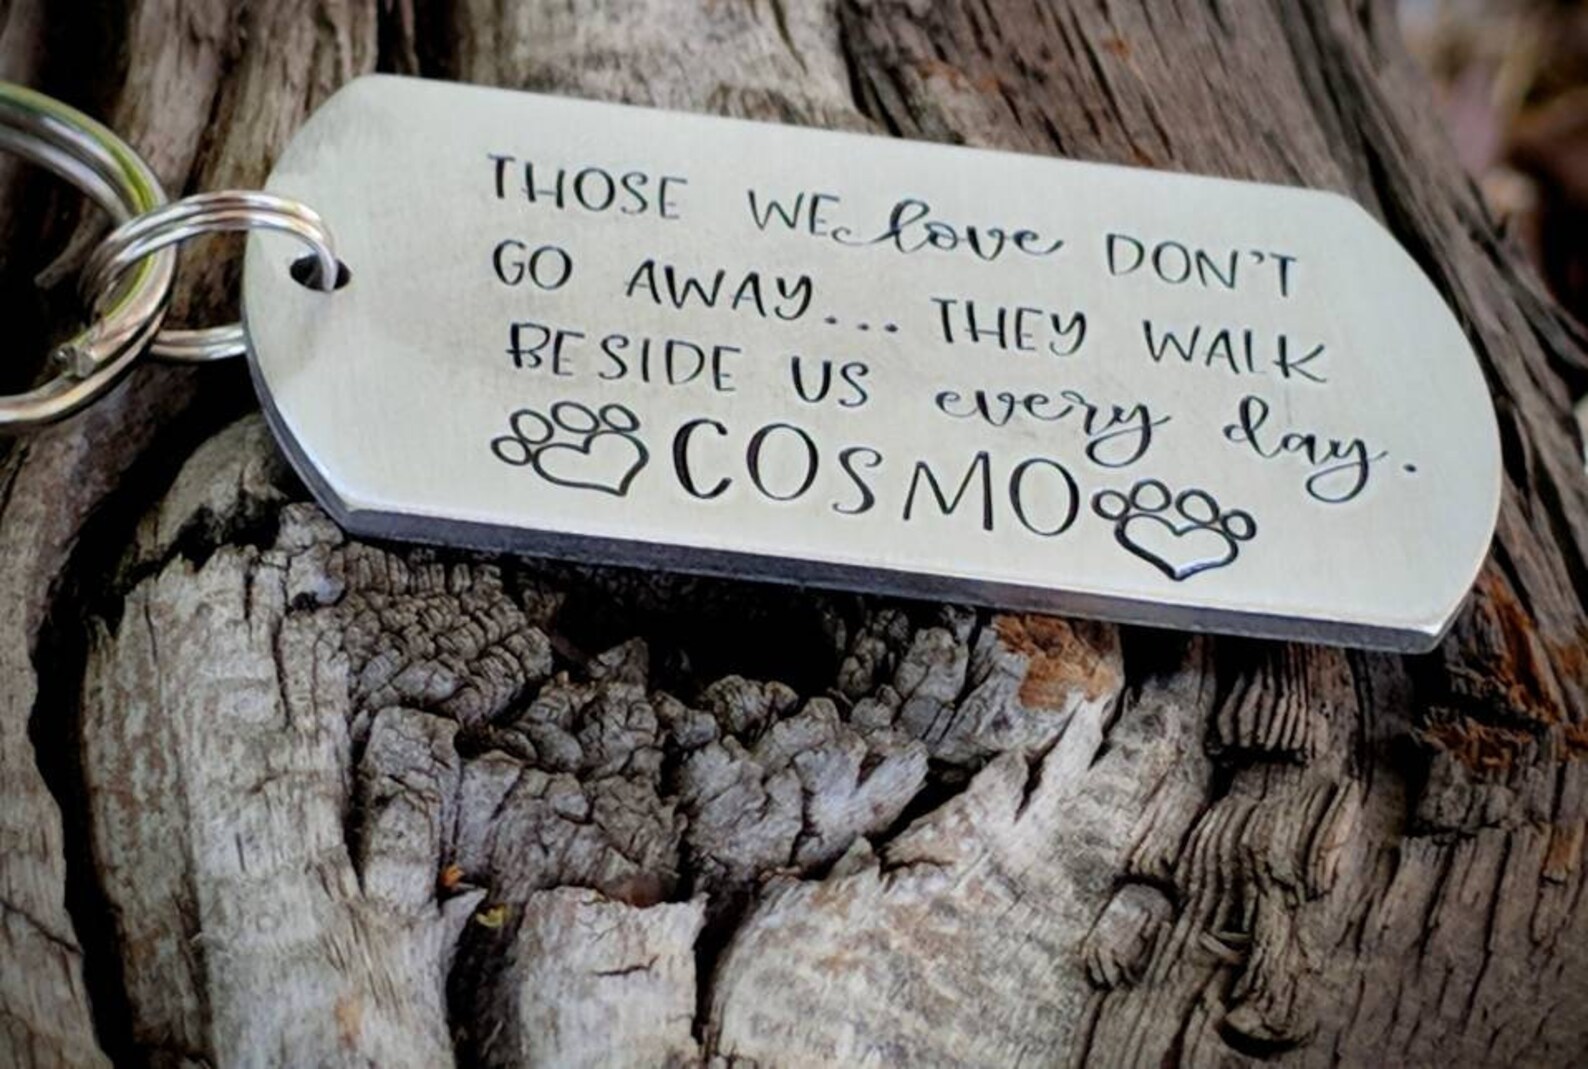 THOSE WE love DON'T
GO AWAY... THEY WALK
BESIDE US every day.
COSMO